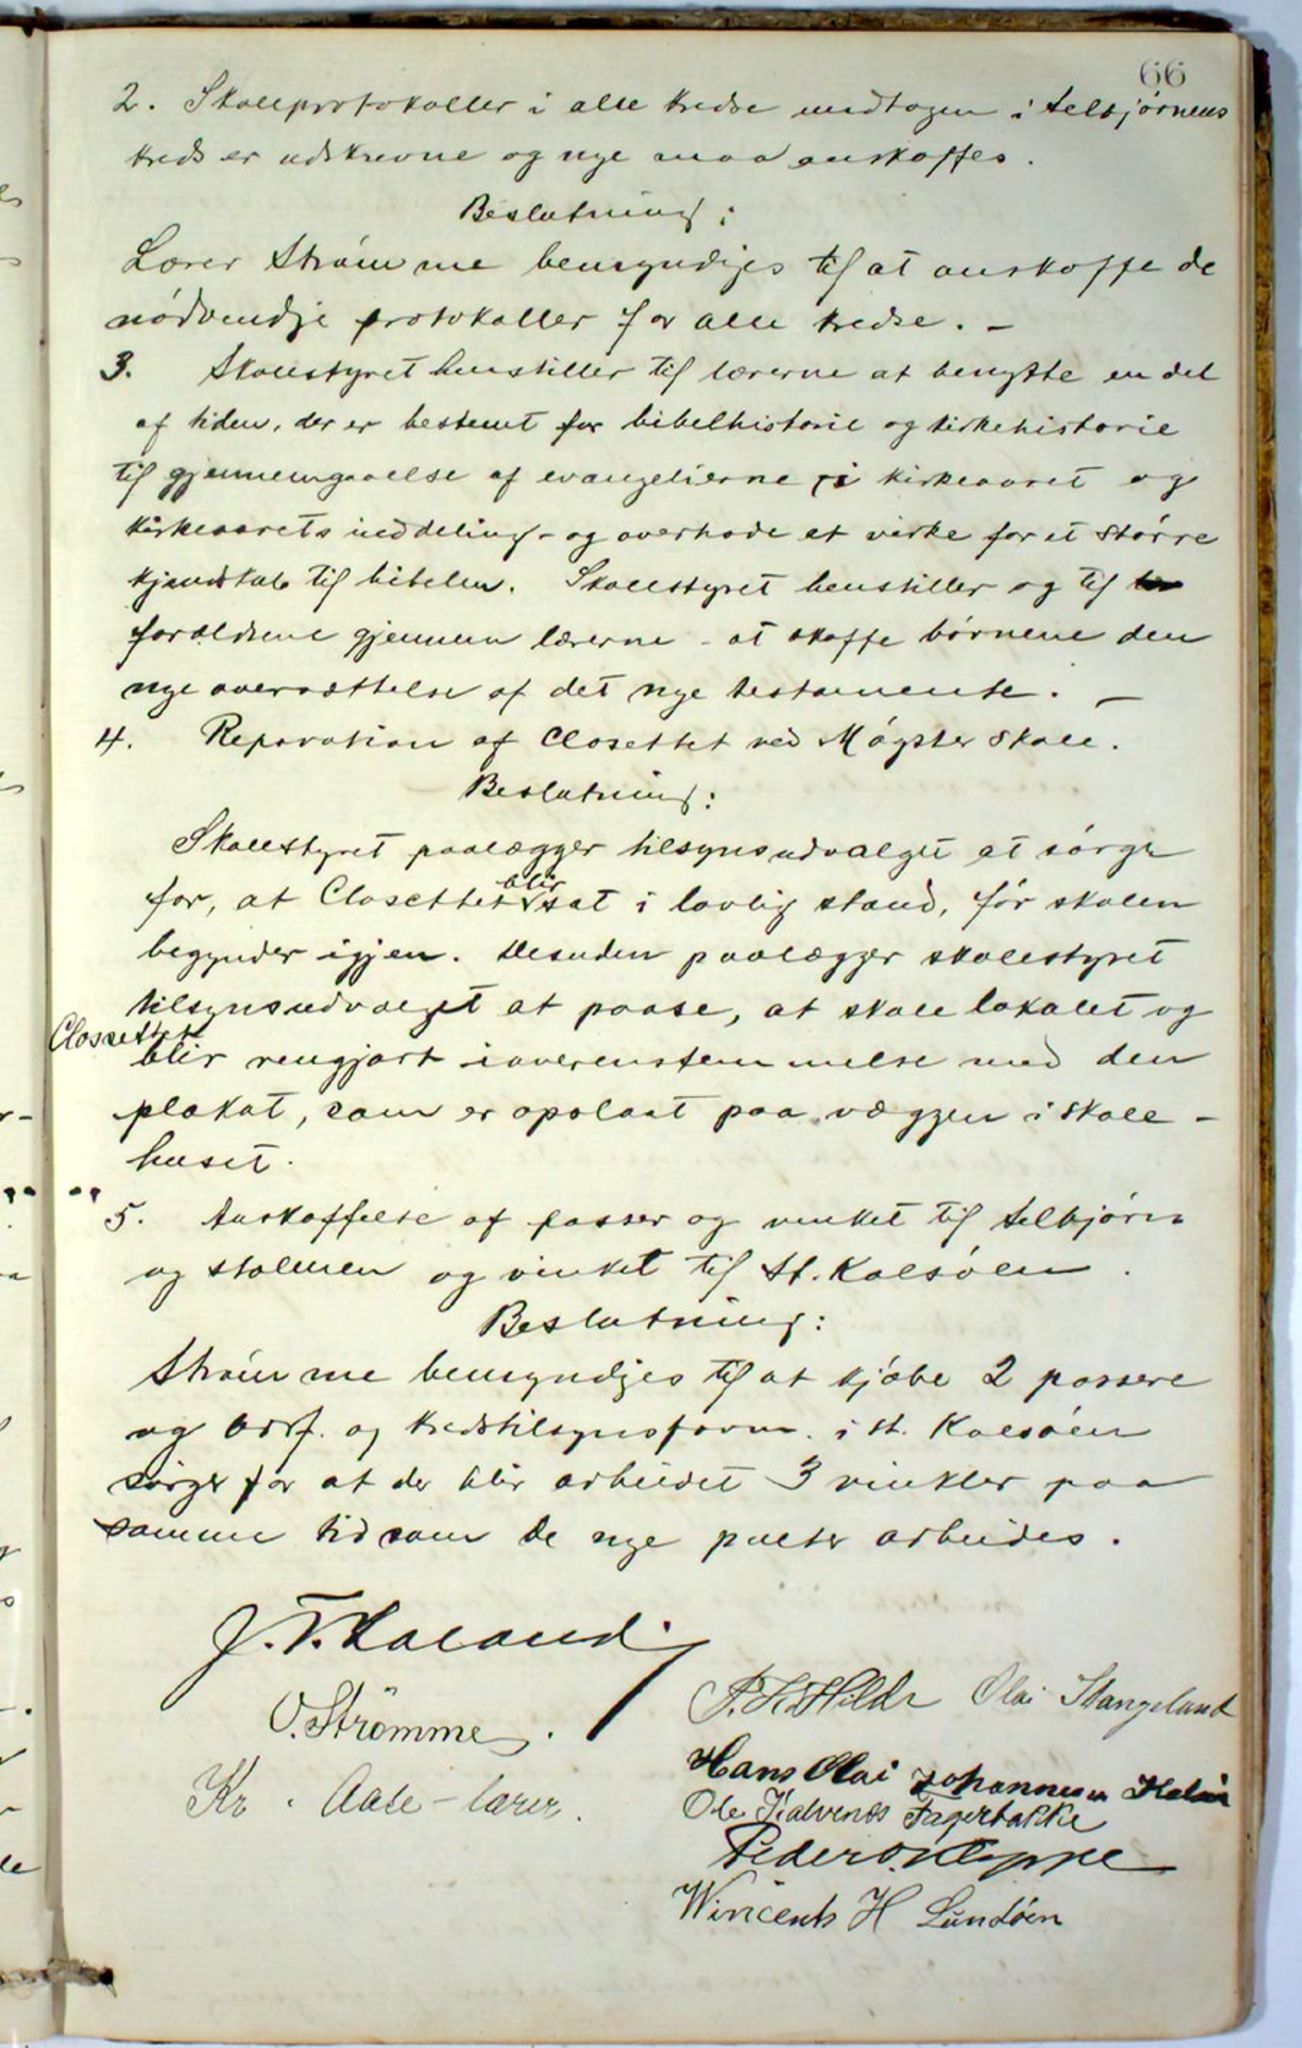 66
2. Skoleprotokoller i alle kredse undtagen i Selbjørnens
kreds er udskrevne og nye maa anskaffes.
Beslutning:
Lærer Strømme bemyndiges til at anskaffe de
nødvendige protokoller for alle kredse. –
3. Skolestyret henstiller til lærerne at benytte en del
af tiden, der er bestemt for bibelhistorie og kirkehistorie
til gjennemgaaelse af evangelierne i kirkeaaret og
kirkeaarets inddeling – og overhode at virke for et større
kjendskab til bibelen. Skolestyret henstiller og til
forældrene gjennem lærerne – at skaffe børnene den
nye oversættelse af det nye testamente. –
4. Reparation af Closettet ved Møgster skole.
Beslutning:
Skolestyret paalægger tilsynsudvalget at sørge
for, at Closettet blir sat i lovlig stand, før skolen
begynder igjen. Desuden paalægger skolestyret
tilsynsudvalget at paase, at skolelokalet og
Clossettet
blir rengjort i overenstemmelse med den
plakat, som er opslaat paa væggen i skole-
huset.
5. Anskaffelse af passer og vinkel til Selbjørn
og Stolmen og vinkel til St. Kalsøen.
Beslutning:
Strømme bemyndiges til at kjøbe 2 passere
og ordf. og kredstilsynsform. i st. Kalsøen
sørger for at der blir arbeidet 3 vinkler paa
samme tid som de nye pulter arbeides.
J. T. Kaland
O. Strömme.
P. K. Hildr Olai Stangeland
Hans Olai Johannesen
Kr. Aase – lærer.
Ole Kalvenes Fagerbakke
Peder O. Kleppe
Wincents H Lundøen